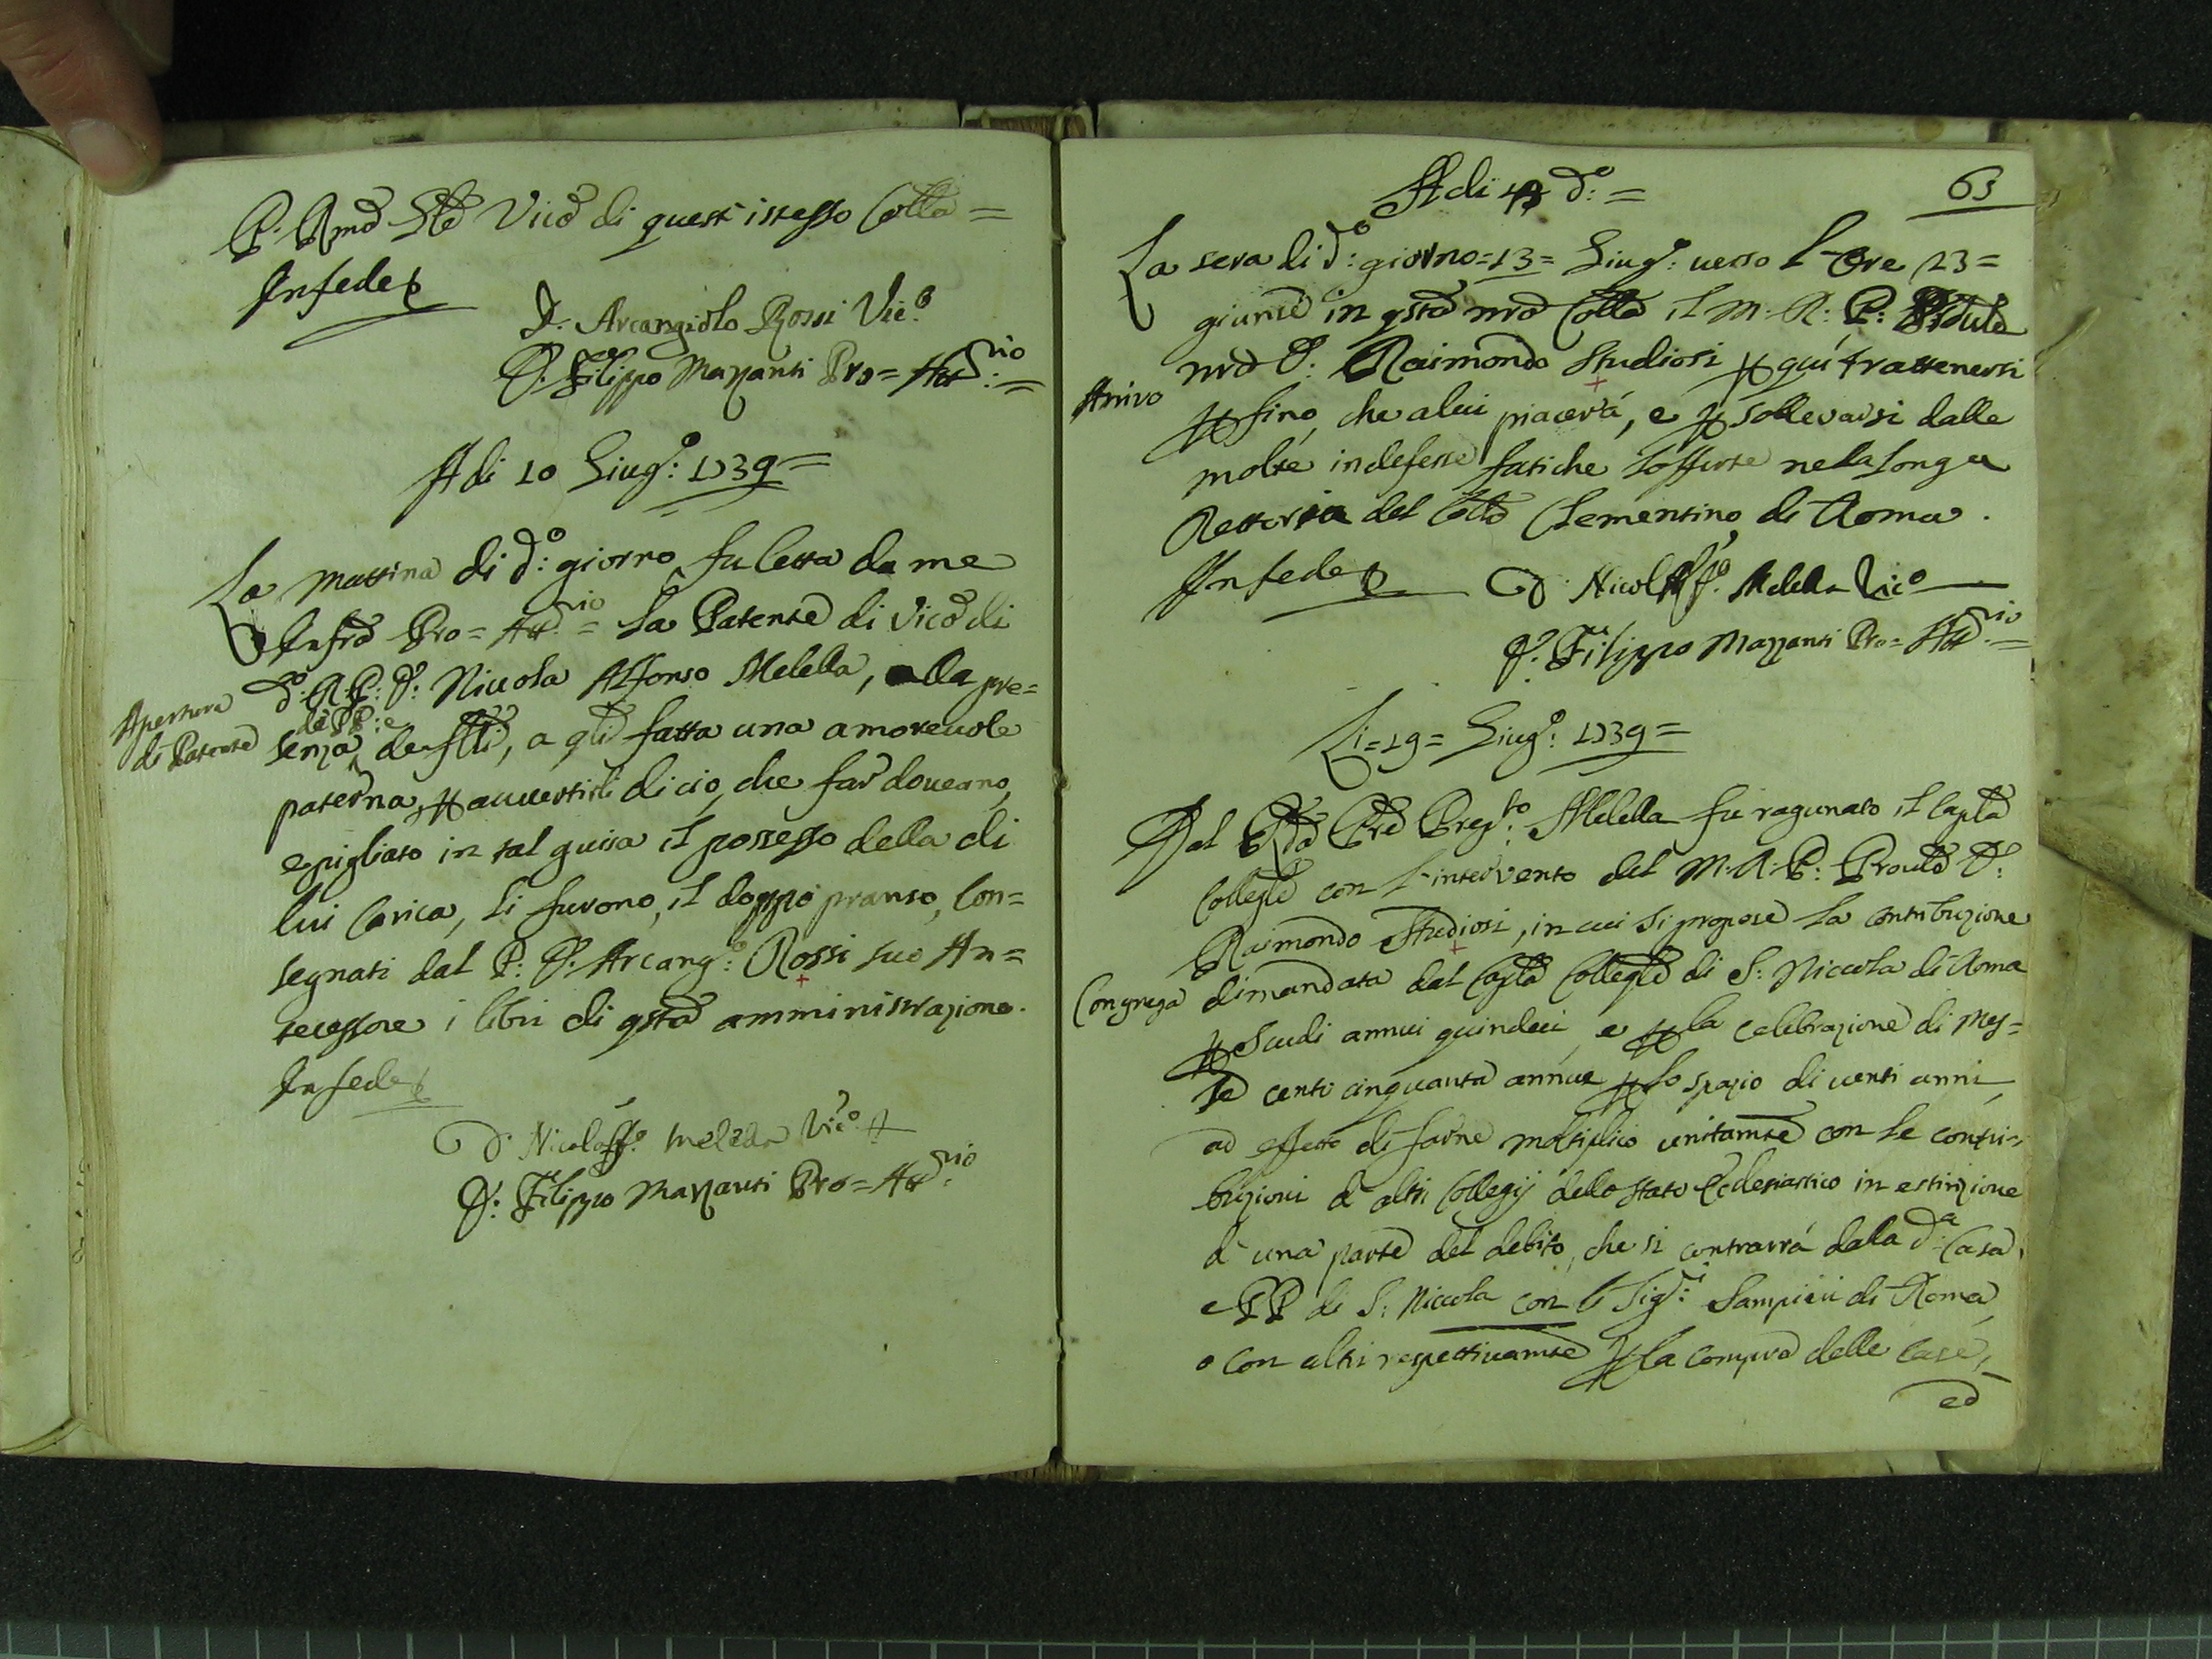 P. Rmo Slto Vico di quest'istesso Collo =
In fede
D. Arcangiolo Rossi Vic.o
D. Filippo Mazzanti Pro= Att.rio =
A di 10 Giug.o: 1739 =
La mattina di d.o: giorno fu letta da me
Infro Pro= Att.rio = La Patente di Vico di
d.o R. P. D: Nicola Alfonso Melella, alla pre=
Apertura
di Patente
de PP: e
senza de Flli, a qli fatta una amorevole
paterna, p avvertirli di ciò, che far doveano,
e pigliato in tal guisa il possesso della di
lui Carica, li furono, il doppo pranso, Con=
segnati dal P: D: Arcang.o: Rossi suo An=
tecessore i libri di qsta amministrazione.
In fede
D. Nicol'Alf.o Melella Vic.o
D: Filippo Mazzanti Pro= Att.rio
63
A di 13 d.o: =
La sera di d.o: giorno =13= Giug.o: verso l'Ore 23 =
giunse in qsto nro Collo il M. R: P:
nro D: Raimondo Studiosi p quí trattenersi
Arrivo
p fino, che a lui piacerà, e p sollevarsi dalle
molte indefesse fatiche sofferte nela longa
Rettoria del Collo Clementino di Roma.
In fede
D. Nicol'Alf.o Melella Vic.o
D: Filippo Mazzanti Pro= Att.rio =
Li =19= Giug.o: 1739 =
Dal Rdo Pre Prep.to: Melella fu ragunato il Caplo
Colleglo con l'intervento del M. R. P: Provlo D:
Raimondo Studiosi, in cui si propose la contribuzione
Congrega
dimandata dal Caplo Colleglo di S: Niccola di Roma
p Scudi annui quindeci, e p la celebrazione di Mes=
se cento cinquanta annue p lo spazio di venti anni,
ad effetto di farne moltiplico unitamte con le contri=
buzioni d'altri Collegij dello stato Ecclesiastico in estinzione
d'una parte del debito, che si contrarrà dalla d.a: Casa,
e PP di S: Niccola con li Sig.ri: Sampieri di Roma,
o con altri respettivamte p la compra delle case,
ed